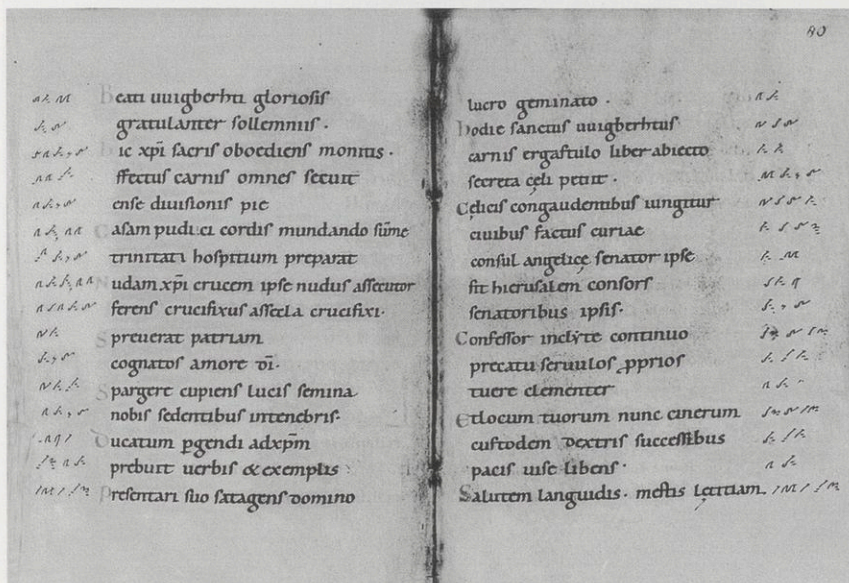 Beati uuigberhti gloriosis
gratulanter sollemniis.
hic xp̄i sacris oboediens monitis.
ffectus carnis omnes secuit
ense diuisionis pie
Casam pudici cordis mundando sūme
trinitati hospitium preparat
Nudam xp̄i crucem ipse nudus assecutor
ferens crucifixus assecla crucifixi.
Spreuerat patriam
cognatos amore dī.
Spargere cupiens lucis semina
nobis sedentibus intenebris.
Ducatum pgendi adxp̄m
prebuit uerbis & exemplis
Presentari suo satagens domino
80
lucro geminato.
hodie sanctus uuigberhtus
carnis ergastulo liber abiecto
secreta cęli petiit.
Cęlicis congaudentibus iungitur
ciuibus factus curiae
consul angelicę senator ipse
fit hierusalem consors
senatoribus ipsis.
Confessor inclyte continuo
precatu seruulos pprios
tuere clementer
Etlocum tuorum nunc cinerum
custodem dextris successibus
pacis uise libens.
Salutem languidis. mestis lętitiam